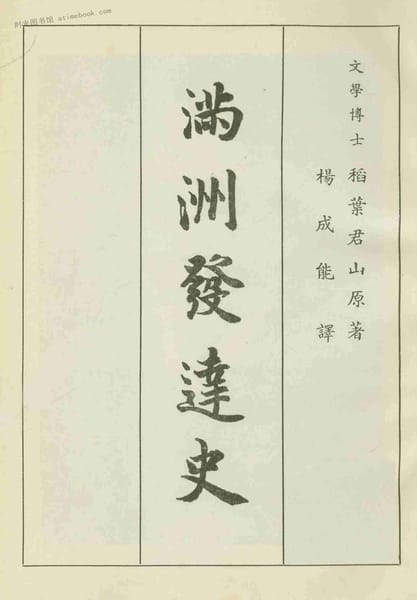 时光图书馆 atimebook.com
文學博士 稻葉君山原著
楊成能 譯
滿洲發達史